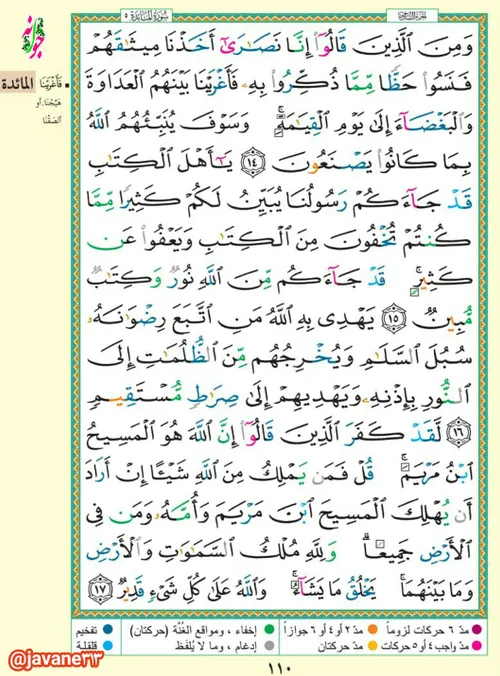 الجزء السادس
سورة المائدة ٥
وَمِنَ ٱلَّذِينَ قَالُوٓاْ إِنَّا نَصَٰرَىٰٓ أَخَذْنَا مِيثَٰقَهُمْ
فَنَسُواْ حَظًّا مِّمَّا ذُكِّرُواْ بِهِۦ فَأَغْرَيْنَا بَيْنَهُمُ ٱلْعَدَاوَةَ
وَٱلْبَغْضَآءَ إِلَىٰ يَوْمِ ٱلْقِيَٰمَةِ ۚ وَسَوْفَ يُنَبِّئُهُمُ ٱللَّهُ
بِمَا كَانُواْ يَصْنَعُونَ ١٤ يَٰٓأَهْلَ ٱلْكِتَٰبِ
قَدْ جَآءَكُمْ رَسُولُنَا يُبَيِّنُ لَكُمْ كَثِيرًا مِّمَّا
كُنتُمْ تُخْفُونَ مِنَ ٱلْكِتَٰبِ وَيَعْفُواْ عَن
كَثِيرٍ ۚ قَدْ جَآءَكُم مِّنَ ٱللَّهِ نُورٌ وَكِتَٰبٌ
مُّبِينٌ ١٥ يَهْدِى بِهِ ٱللَّهُ مَنِ ٱتَّبَعَ رِضْوَٰنَهُۥ
سُبُلَ ٱلسَّلَٰمِ وَيُخْرِجُهُم مِّنَ ٱلظُّلُمَٰتِ إِلَى
ٱلنُّورِ بِإِذْنِهِۦ وَيَهْدِيهِمْ إِلَىٰ صِرَٰطٍ مُّسْتَقِيمٍ
١٦ لَّقَدْ كَفَرَ ٱلَّذِينَ قَالُوٓاْ إِنَّ ٱللَّهَ هُوَ ٱلْمَسِيحُ
ٱبْنُ مَرْيَمَ ۚ قُلْ فَمَن يَمْلِكُ مِنَ ٱللَّهِ شَيْـًٔا إِنْ أَرَادَ
أَن يُهْلِكَ ٱلْمَسِيحَ ٱبْنَ مَرْيَمَ وَأُمَّهُۥ وَمَن فِى
ٱلْأَرْضِ جَمِيعًا ۗ وَلِلَّهِ مُلْكُ ٱلسَّمَٰوَٰتِ وَٱلْأَرْضِ
وَمَا بَيْنَهُمَا ۚ يَخْلُقُ مَا يَشَآءُ ۚ وَٱللَّهُ عَلَىٰ كُلِّ شَىْءٍ قَدِيرٌ ١٧
جوانه
المائدة
فَأَغْرَيْنَا
هَيَّجْنا، أو
ألْصَقْنا
مدّ ٦ حركات لزوماً
مدّ ٢ أو ٤ أو ٦ جوازاً
إخفاء، ومواقع الغُنَّة (حركتان)
تفخيم
مدّ واجب ٤ أو ٥ حركات
مدّ حركتان
إدغام، وما لا يُلفَظ
قلقلة
١١٠
@javane٣٣